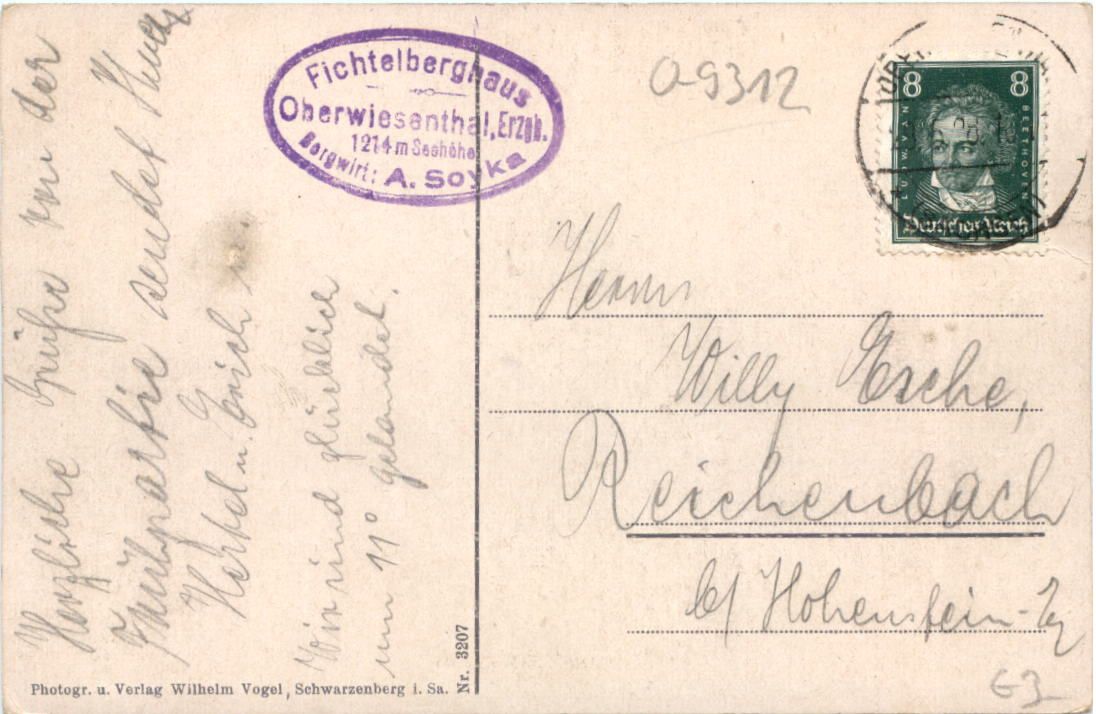 Fichtelberghaus
Oberwiesenthal, Erzgb.
1214 m Seehöhe
Bergwirt: A. Soyka
O-9312
8 8
LUDWIG VAN
BEETHOVEN
Deutsches Reich
Herzliche Grüße von der
Frühpartie sendet
Herbel u. Erich
Wir sind glücklich
um 11° gelandet.
Herrn
Willy Esche,
Reichenbach
b/ Hohenstein-
Nr. 3207
Photogr. u. Verlag Wilhelm Vogel, Schwarzenberg i. Sa.